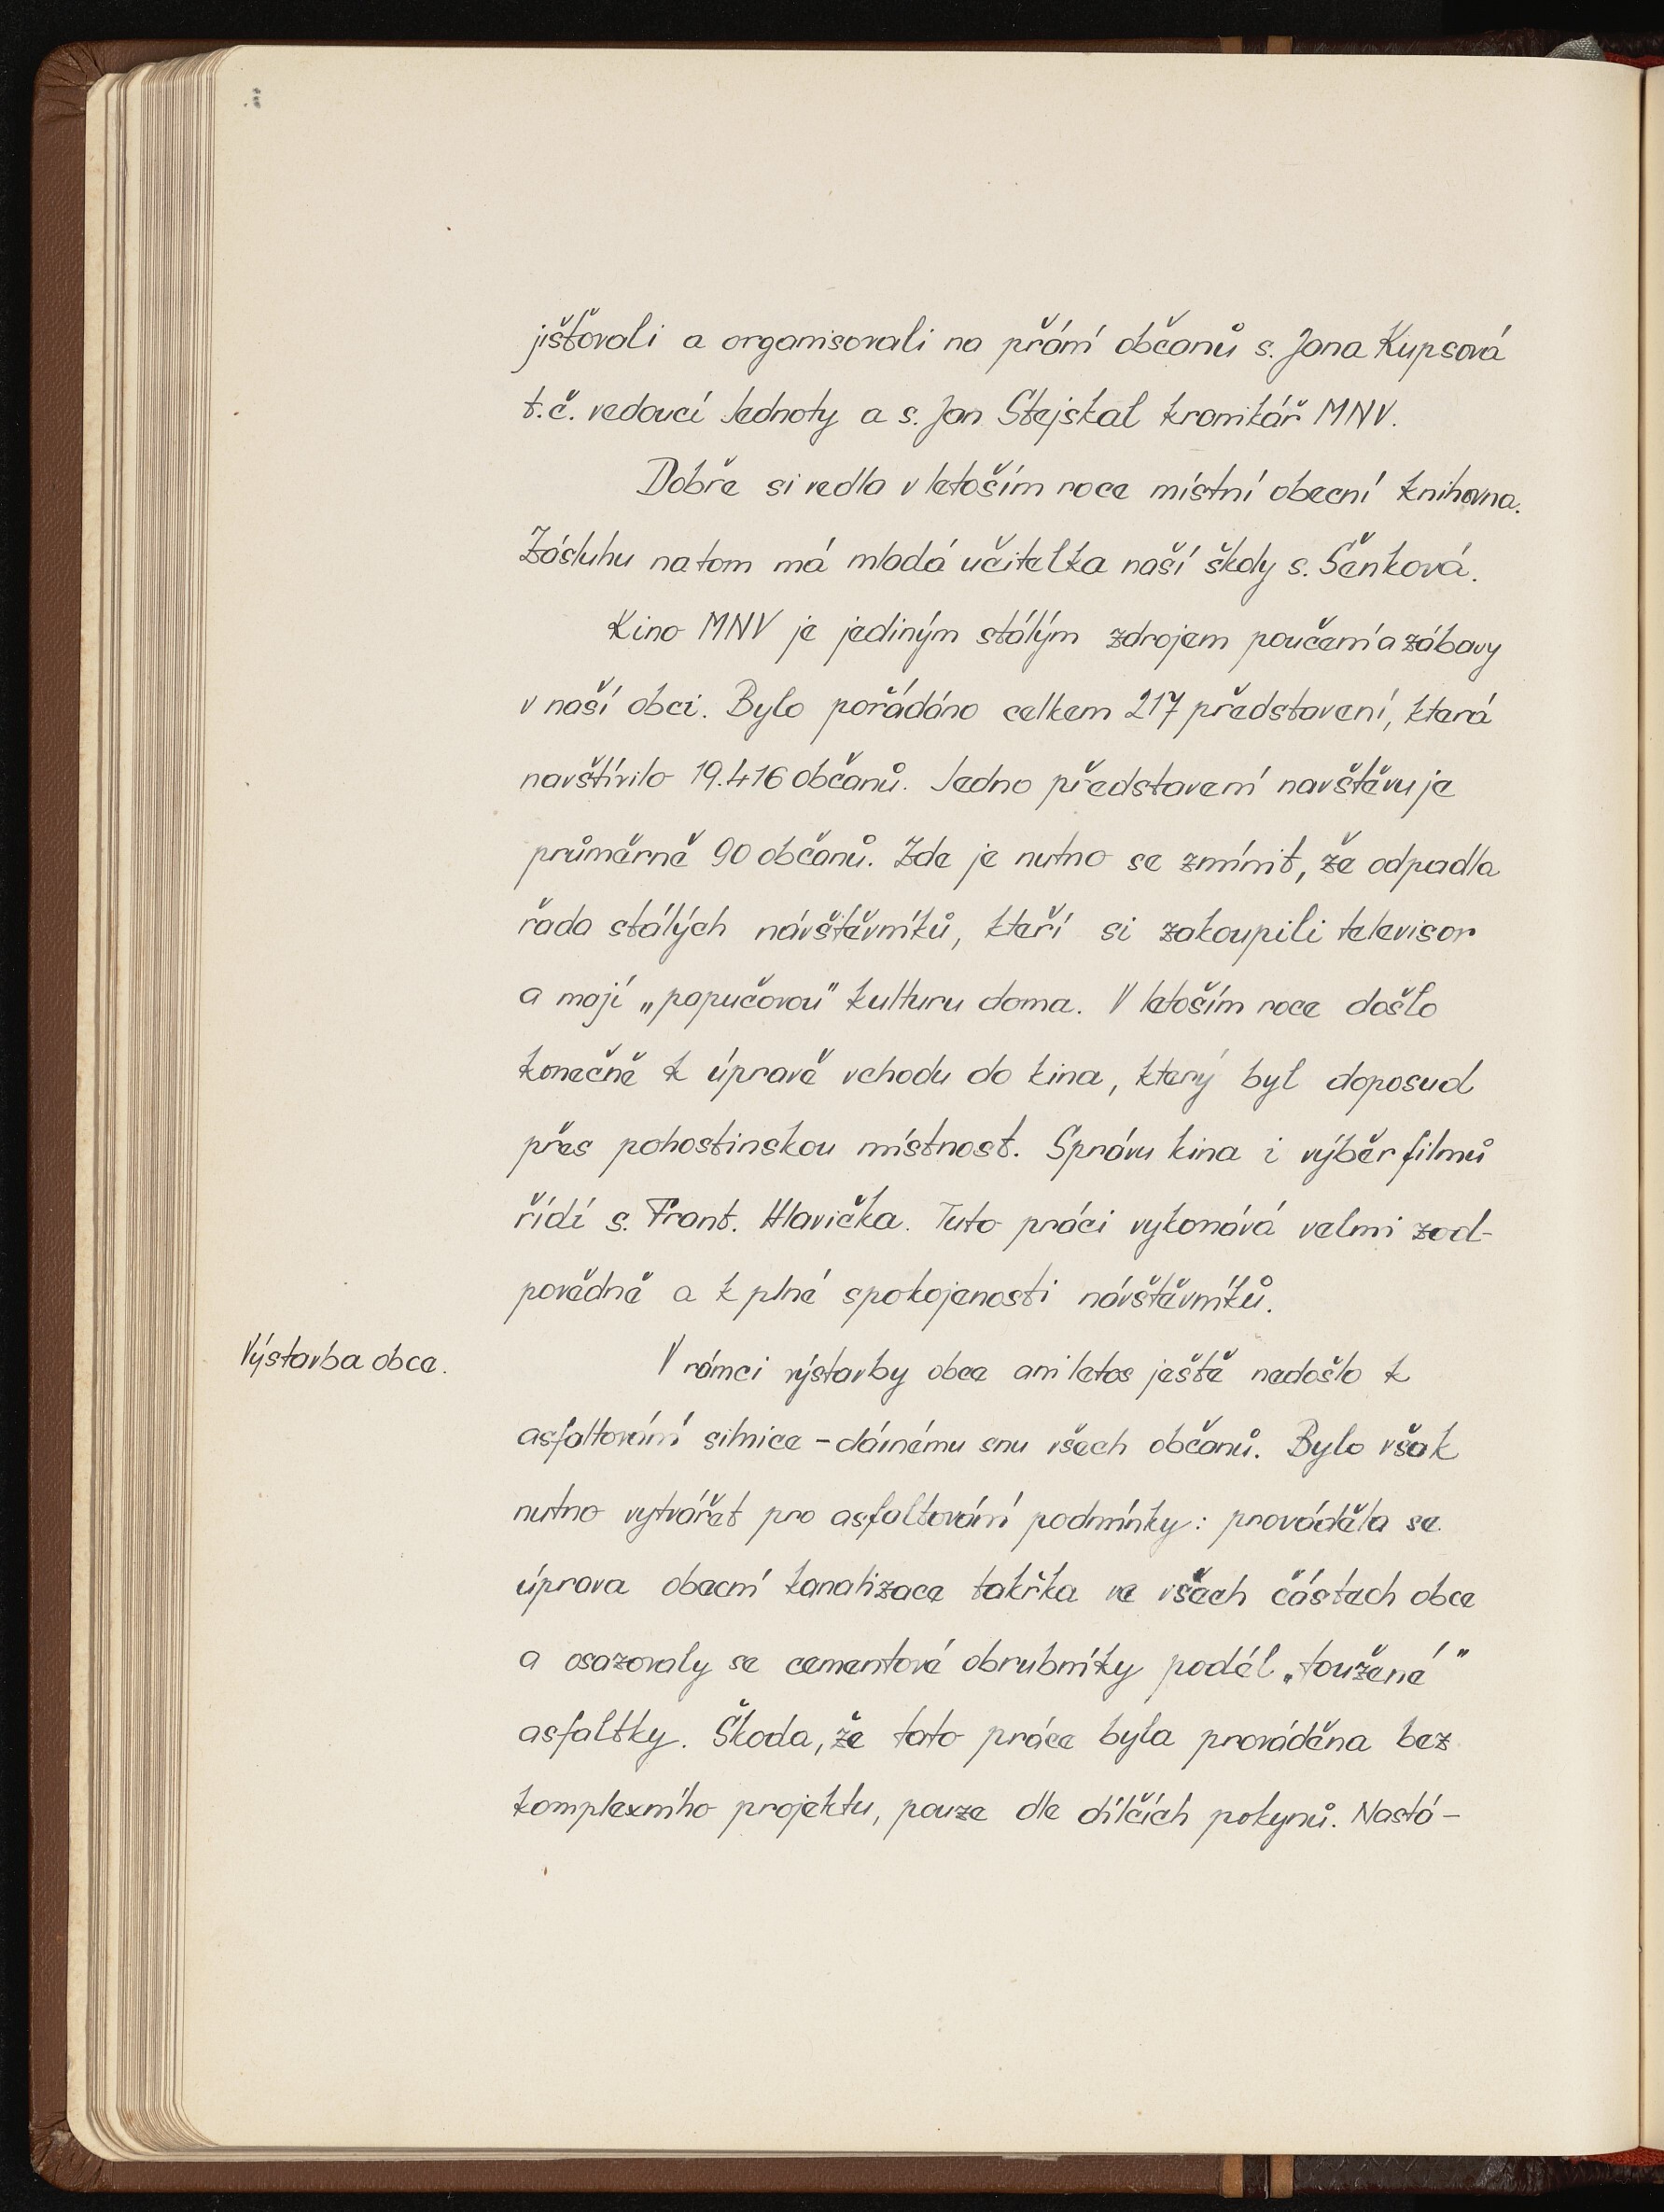 jišťovali a organisovali na přání občanů s. Jana Kupsová
t.č. vedoucí Jednoty a s. Jan Stejskal kronikář MNV.
Dobře si vedla v letoším roce místní obecní knihovna.
Zásluhu na tom má mladá učitelka naší školy s. Sěnková.
Kino MNV je jediným stálým zdrojem poučení a zábavy
v naší obci. Bylo pořádáno celkem 217 představení, která
navštívilo 19.416 občanů. Jedno představení navštěvuje
průměrně 90 občanů. Zde je nutno se zmínit, že odpadla
řada stálých návštěvníků, kteří si zakoupili televisor
a mají „popučovou" kulturu doma. V letoším roce došlo
konečně k úpravě vchodu do kina, který byl doposud
přes pohostinskou místnost. Správu kina i výběr filmů
řídí s. Frant. Hlavička. Tuto práci vykonává velmi zod-
povědně a k plné spokojenosti návštěvníků.
Výstavba obce.
V rámci výstavby obce ani letos ještě nedošlo k
asfaltování silnice - dávnému snu všech občanů. Bylo však
nutno vytvářet pro asfaltování podmínky: prováděla se
úprava obecní kanalizace takřka ve všech částech obce
a osazovaly se cementové obrubníky podél „toužené"
asfaltky. Škoda, že tato práce byla prováděna bez
komplexního projektu, pouze dle dílčích pokynů. Nastá-